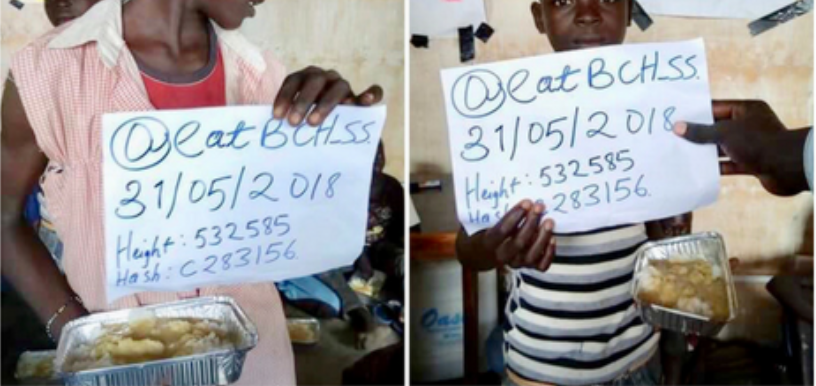 @eatBCH_SS.
31/05/2018
Height: 532585
Hash: C283156.
@eatBCH_SS.
31/05/2018
Height: 532585
283156.